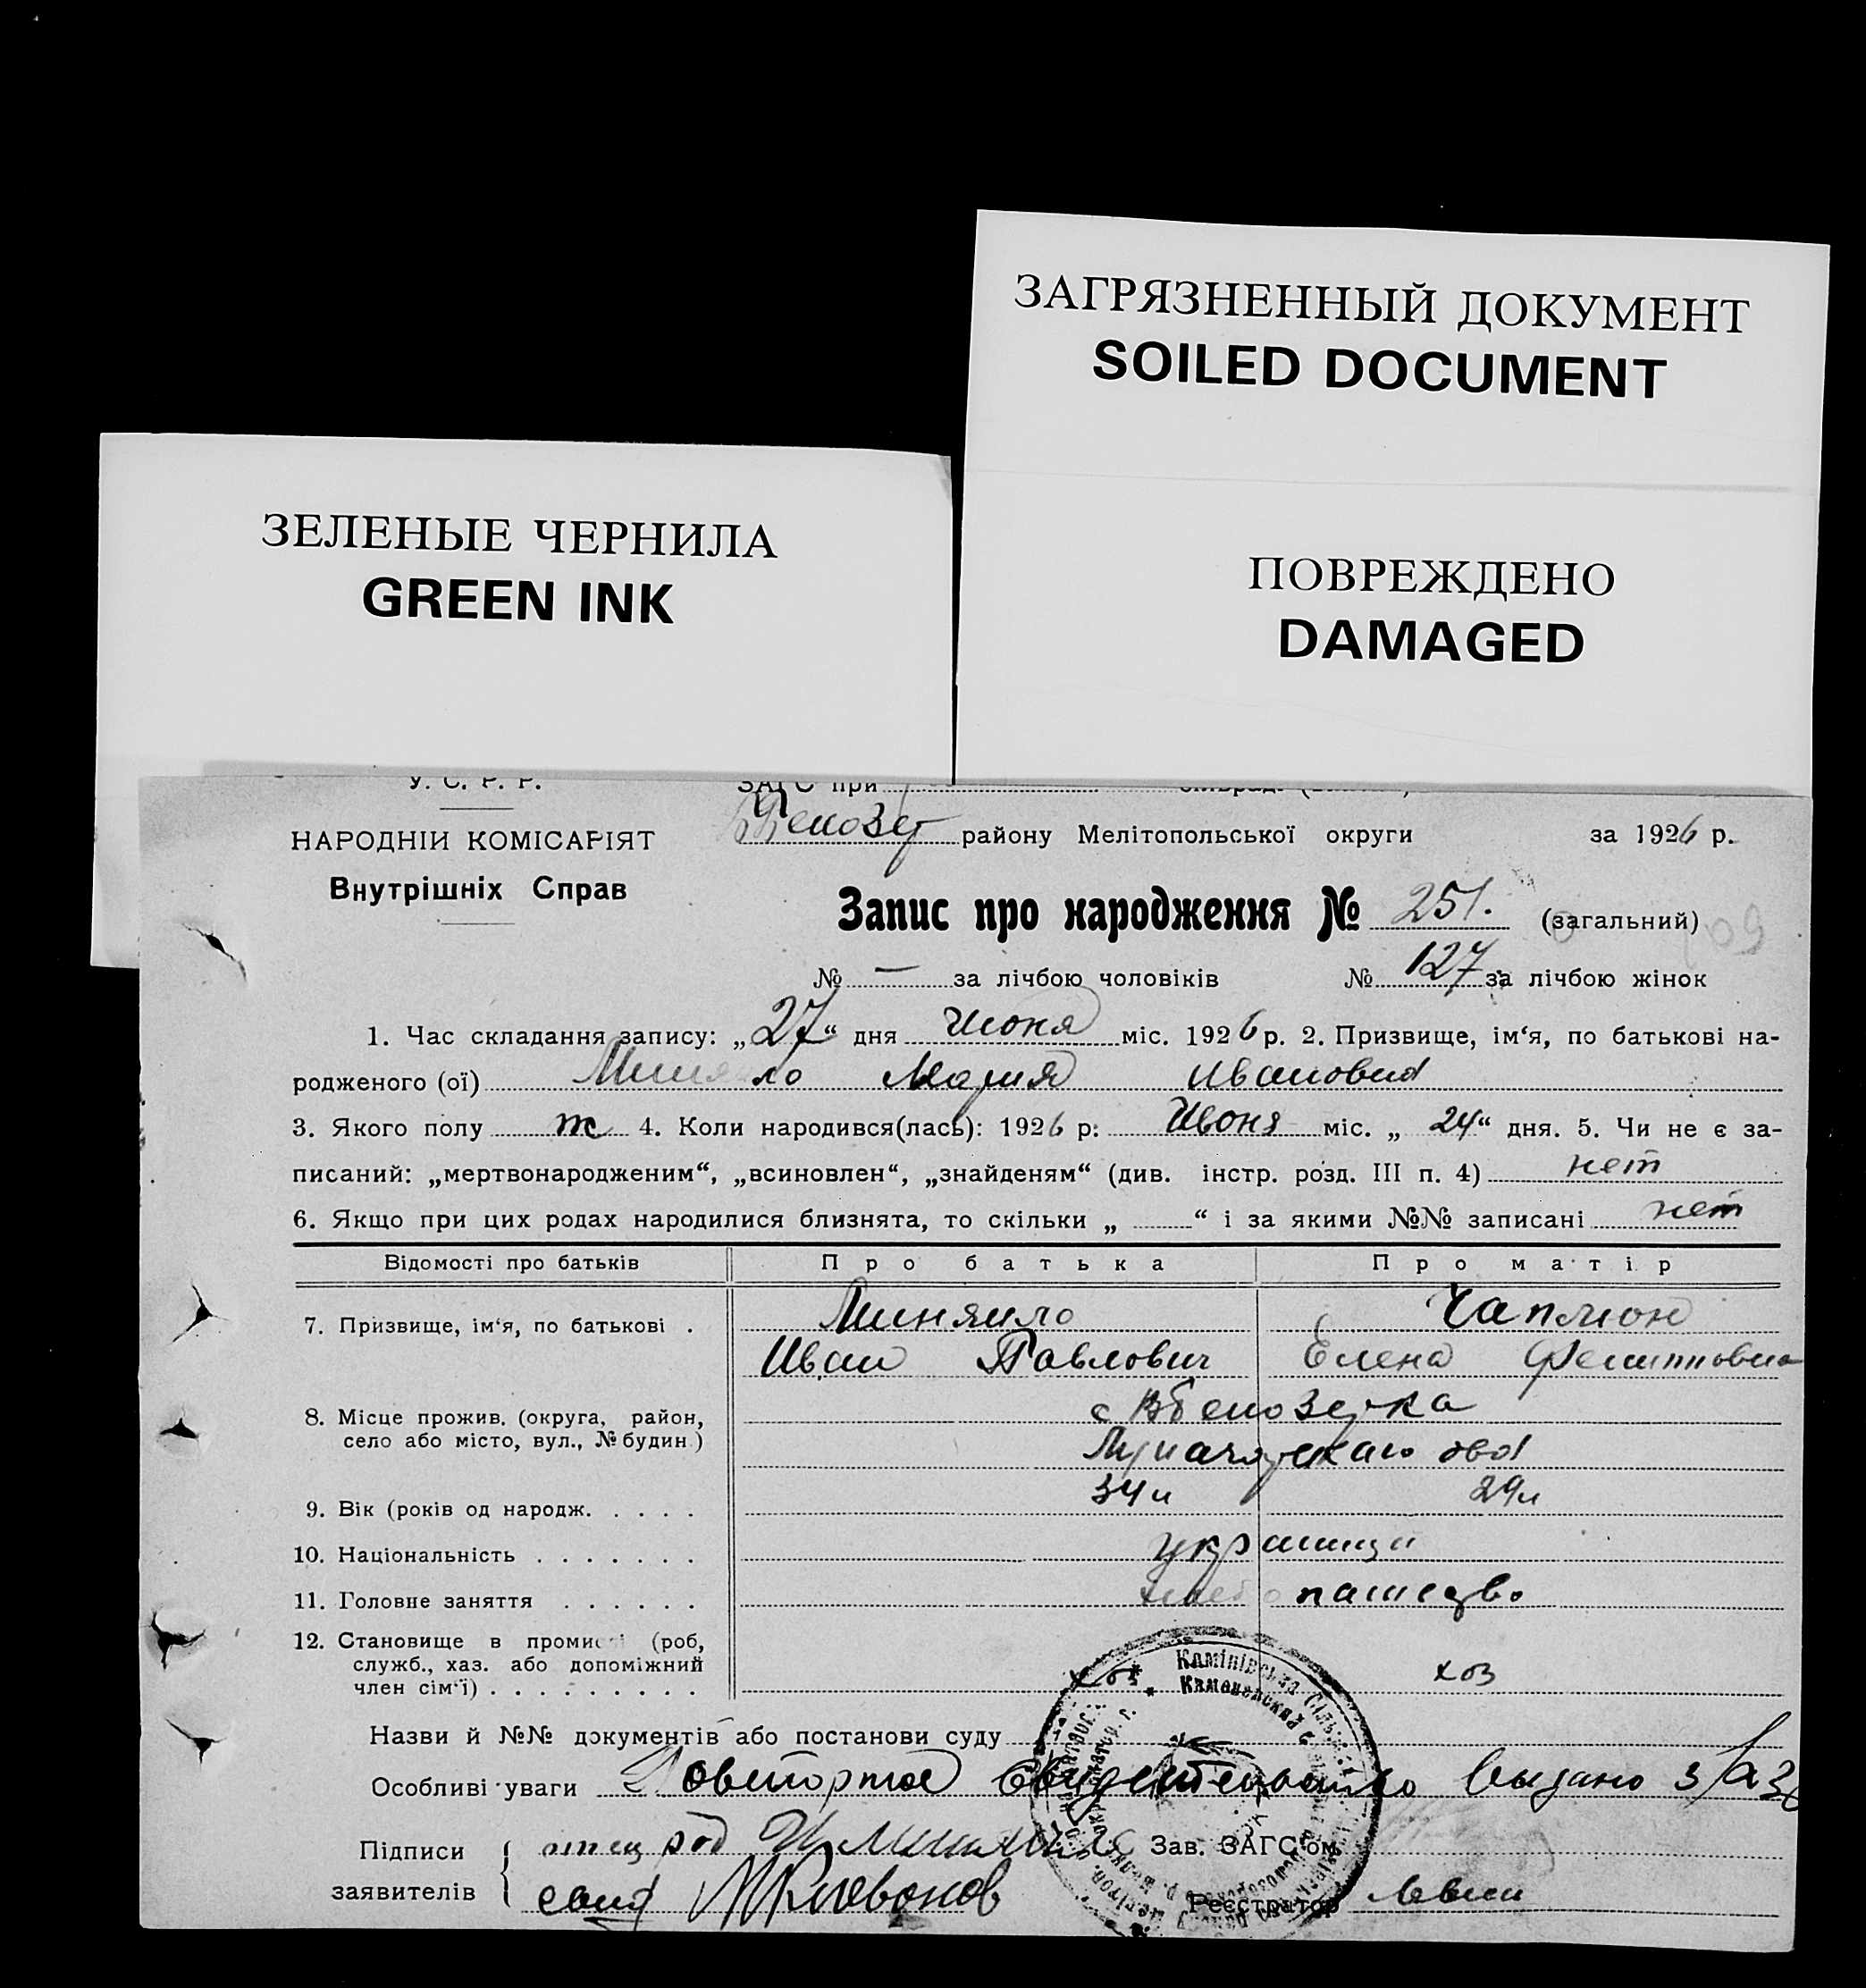 ЗАГРЯЗНЕННЫЙ ДОКУМЕНТ
SOILED DOCUMENT
ПОВРЕЖДЕНО
DAMAGED
ЗЕЛЕНЫЕ ЧЕРНИЛА
GREEN INK
У. С. Р. Р.
ЗАГС при
НАРОДНІИ КОМІСАРІЯТ
району Мелітопольської округи за 1926 р.
Внутрішніх Справ
Запис про народження № 251. (загальний)
№ — за лічбою чоловіків № 127 за лічбою жінок
1. Час складання запису: „27“ дня Июня міс. 1926 р. 2. Призвище, ім‘я, по батькові на-
родженого (ої) Мария Ивановна
3. Якого полу ж 4. Коли народився(лась): 1926 р. Июня міс. „24“ дня. 5. Чи не є за-
писаний: „мертвонародженим“, „всиновлен“, „знайденям“ (див. інстр. розд. III п. 4) нет
6. Якщо при цих родах народилися близнята, то скільки „ “ і за якими №№ записані нет
Відомості про батьків Про батька Про матір
7. Призвище, ім‘я, по батькові . Миняило Чаплион
Иван Павлович Елена Филипповна
8. Місце прожив. (округа, район,
село або місто, вул., № будин.)
9. Вік (років од народж. . . . . 34 29
10. Національність . . . . . . . украинцы
11. Головне заняття . . . . . . хлебопашество
12. Становище в промисл (роб,
служб., хаз. або допоміжний
член сім‘ї) . . . . . . . . . хоз хоз
Назви й №№ документів або постанови суду
Особливі уваги Повторное свидетельство выдано
Підписи отец Зав. ЗАГС‘ом
заявителів Реєстратор